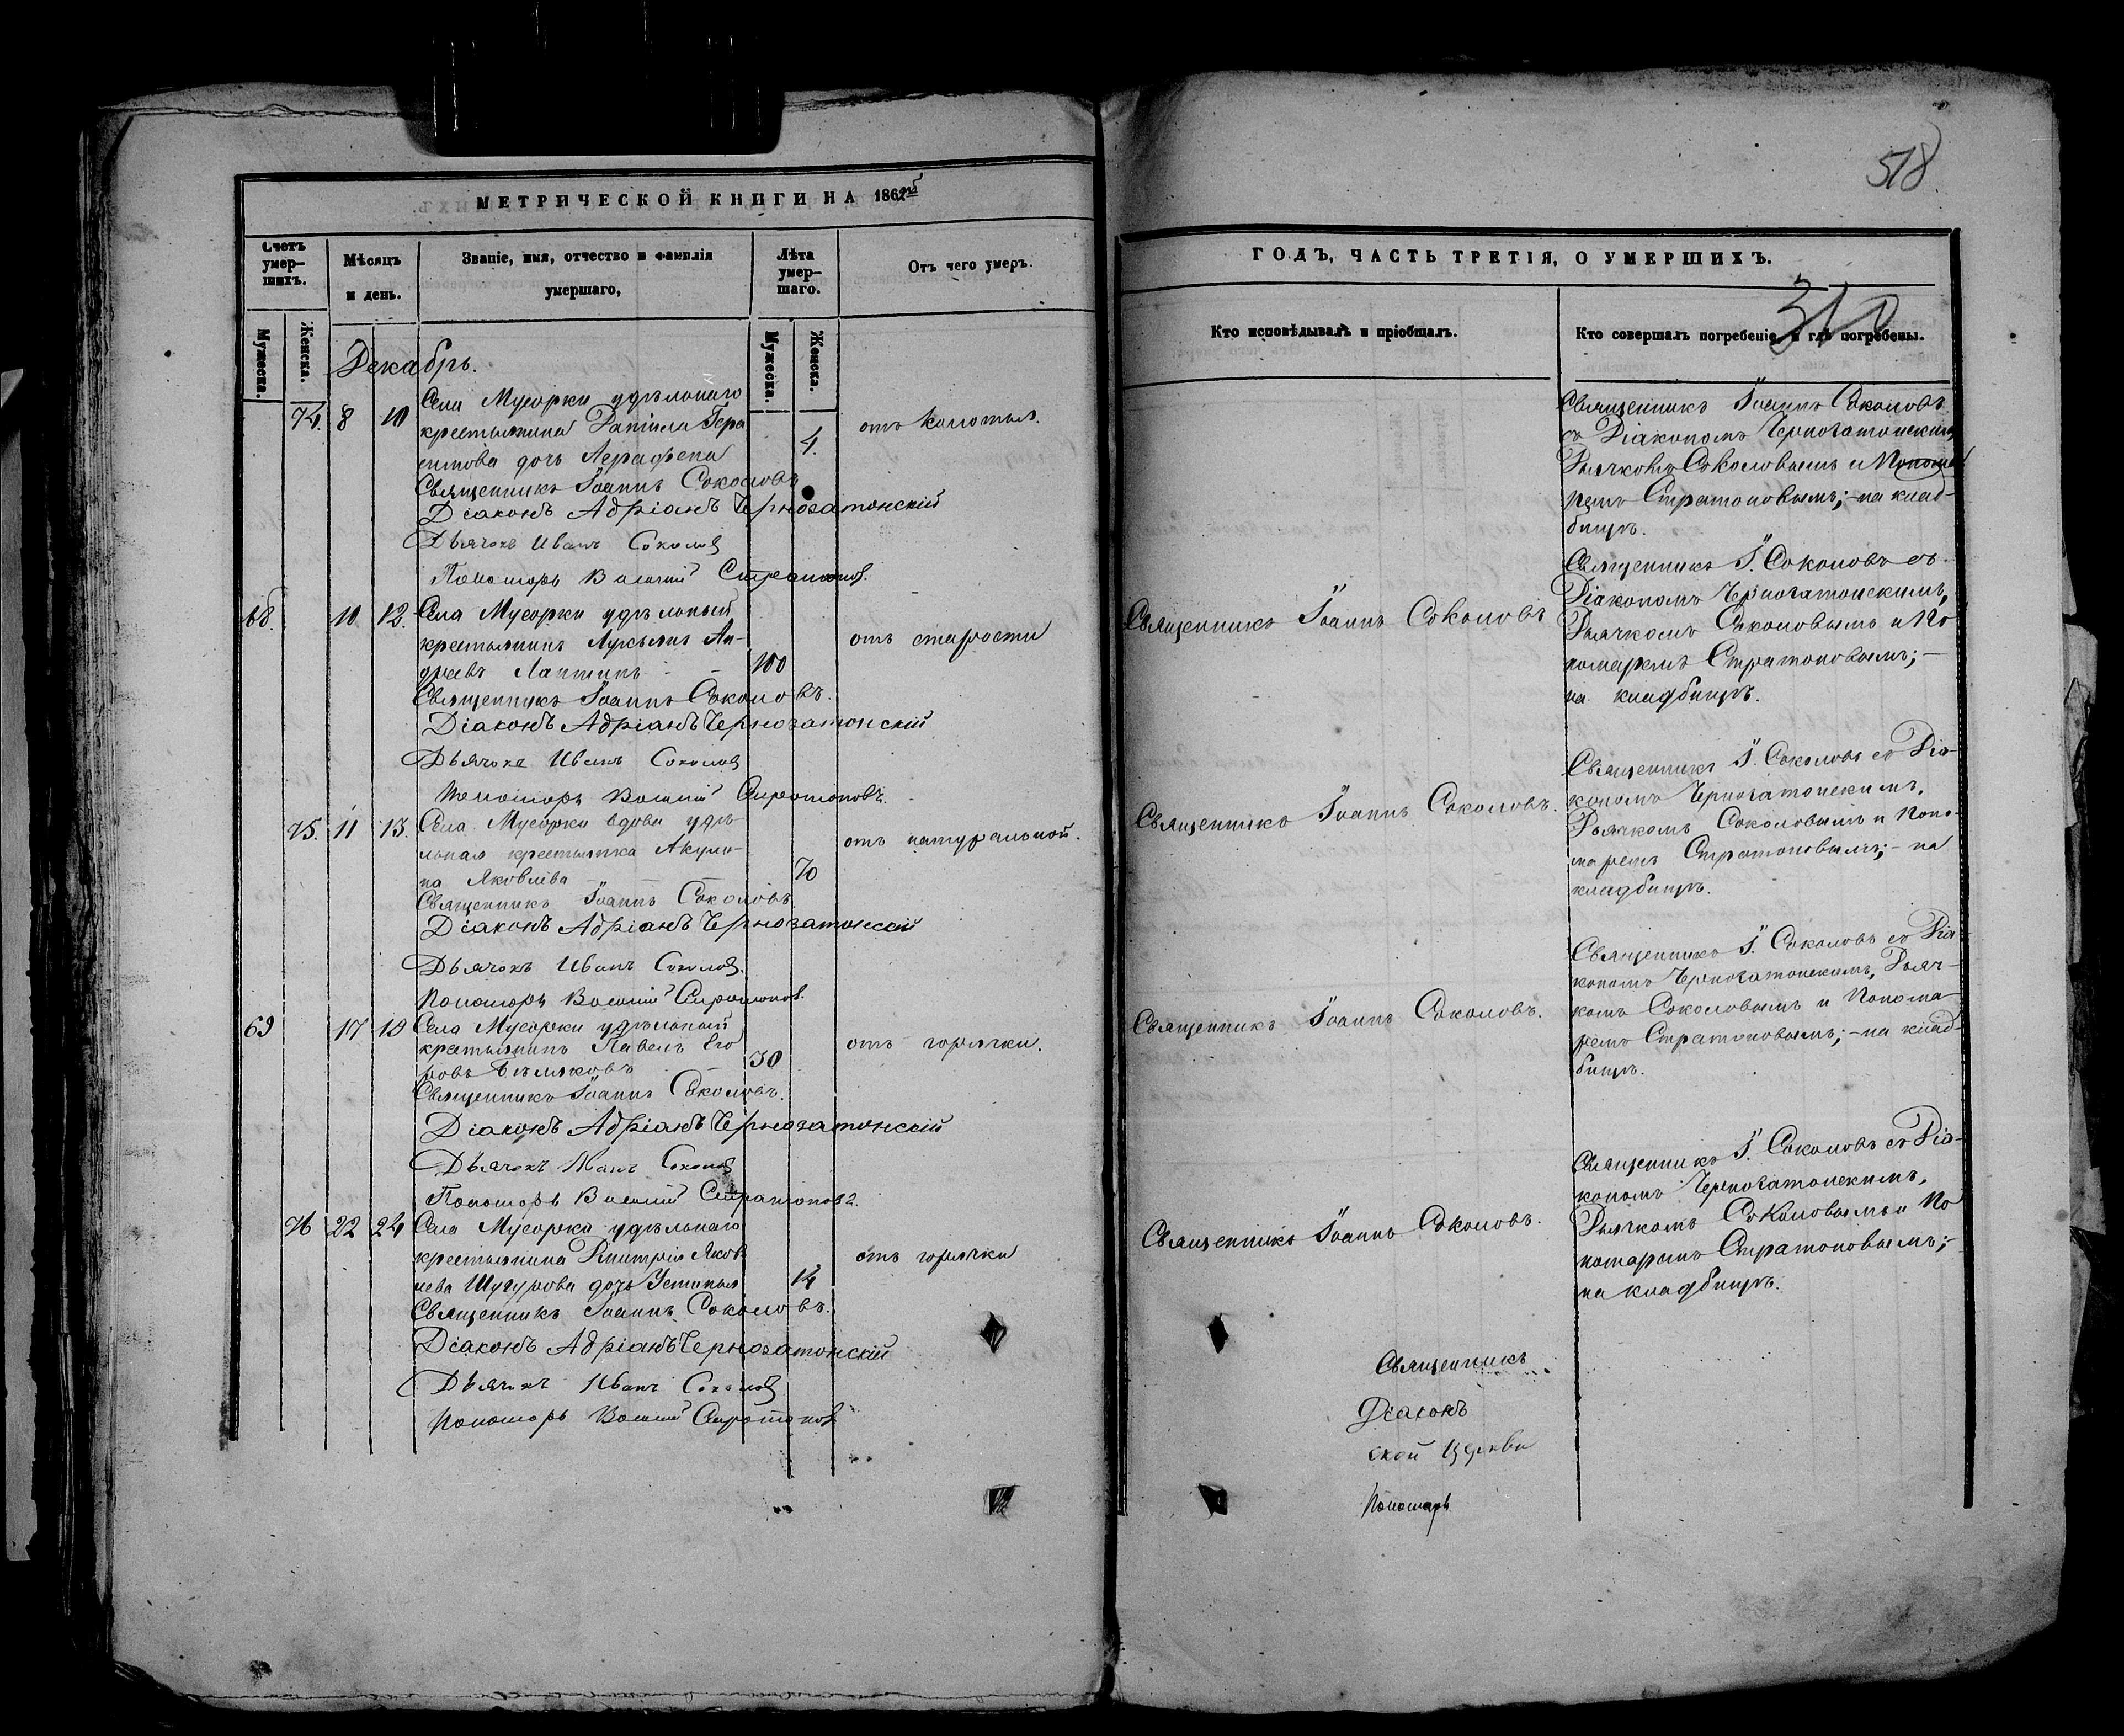 МЕТРИЧЕСКОЙ КНИГИ НА 186
Счетъ умер-шихъ.
Мужеска.
Женска.
Мѣсяцъ и день.
Званіе, имя, отчество и фамилія умершаго,
Лѣта умер-шаго.
Мужеска.
Женска.
Отъ чего умеръ.
Декабрь.
74. 8 10 Села Мусорки удѣльнаго
крестьянина Данiила Гера
симова дочь Аграфена 4. отъ колотья.
Священникъ Іоаннъ Соколовъ
Діаконъ Адріанъ Черногатонскій
Дьячокъ Иванъ Соколов
Пономарь Василий Стратонов.
68. 10 12. Села Мусорки удѣльный
крестьянинъ Лукьянъ Ан-
дреевъ Лаптинъ - - 100 отъ старости
Священникъ Іоаннъ Соколовъ.
Діаконъ Адріанъ Черногатонскій
Дьячокъ Иванъ Соколов
Пономарь Василий Стратоновъ.
75. 11 13. Села Мусорки вдова удѣ-
льная крестьянка Акули-
на Яковлева 70 отъ натуральной.
Священникъ Іоаннъ Соколовъ
Діаконъ Адріанъ Черногатонскій
Дьячокъ Иванъ Соколов.
Пономарь Василий Стратонов.
69 17 19 Села Мусорки удѣльный
крестьянинъ Павелъ Его
ровъ Бѣляковъ 50 отъ горячки.
Священникъ Іоаннъ Соколовъ.
Діаконъ Адріанъ Черногатонскій
Дьячокъ Иванъ Соколов
Пономарь Василий Стратоновъ.
76 22 24 Села Мусорки удѣльнаго
крестьянина Дмитрія Яков
лева Шугурова дочь Устинья 14 отъ горячки
Священникъ Іоаннъ Соколовъ.
Діаконъ Адріанъ Черногатонскій
Дьячокъ Иванъ Соколов
Пономарь Василий Стратонов
518
ГОДЪ, ЧАСТЬ ТРЕТІЯ, О УМЕРШИХЪ.
Кто исповѣдывалъ и пріобщалъ.
Кто совершалъ погребеніе, и гдѣ погребены.
Священникъ Іоаннъ Соколовъ
съ Діакономъ Черногатонскимъ
Дьячкомъ Соколовымъ и Понома
ремъ Стратоновымъ; - на клад-
бищѣ.
Священникъ Іоаннъ Соколовъ
Священникъ І. Соколовъ съ
Діакономъ Черногатонскимъ,
Дьячкомъ Соколовымъ и По
номаремъ Стратоновымъ; -
на кладбищѣ.
Священникъ Іоаннъ Соколовъ.
Священникъ І. Соколовъ съ Діа-
кономъ Черногатонскимъ,
Дьячкомъ Соколовымъ и Поно-
маремъ Стратоновымъ; - на
кладбищѣ.
Священникъ Іоаннъ Соколовъ.
Священникъ І. Соколовъ съ Діа
кономъ Черногатонскимъ, Дьяч-
комъ Соколовымъ и Понома
ремъ Стратоновымъ; - на клад-
бищѣ.
Священникъ Іоаннъ Соколовъ.
Священникъ І. Соколовъ съ Діа-
кономъ Черногатонскимъ,
Дьячкомъ Соколовымъ и По
номаремъ Стратоновымъ; -
на кладбищѣ.
Священникъ
Діаконъ
ской Церкви
Пономарь